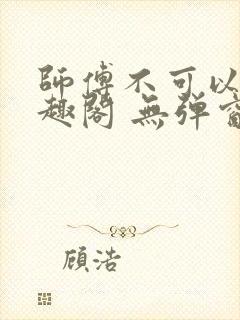 師傅不可以
趣閣 無弹窗
顾浩